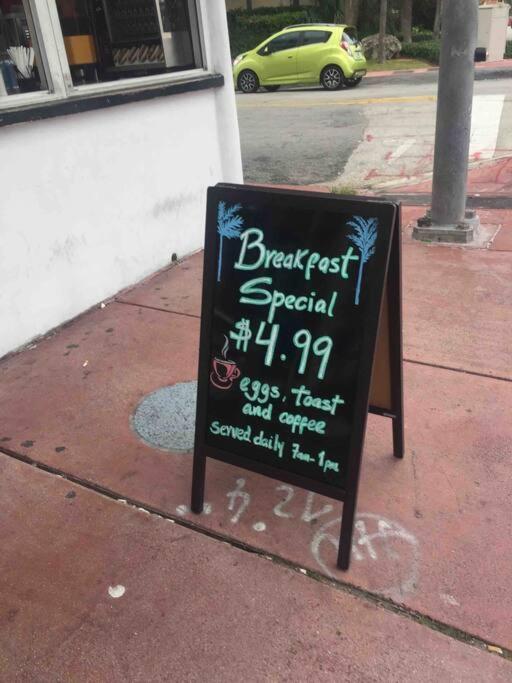 Breakfast
Special
$4.99
eggs, toast
and coffee
Served daily 7am-1pm